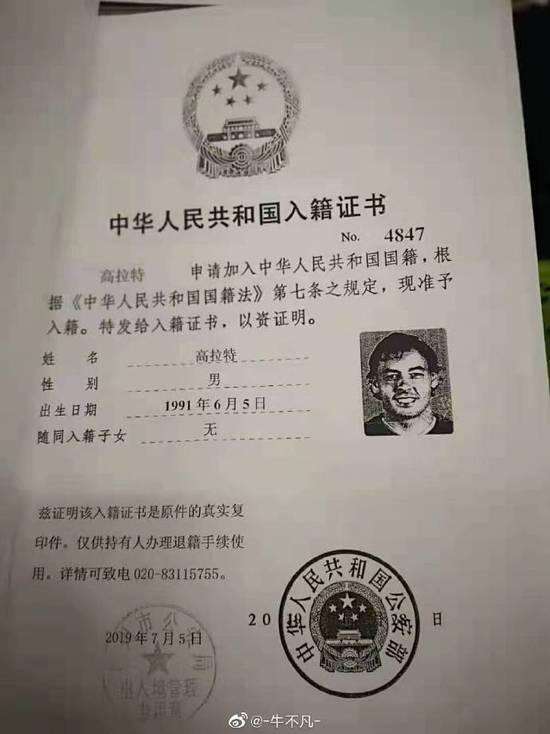 中华人民共和国入籍证书
No. 4847
高拉特 申请加入中华人民共和国国籍，根
据《中华人民共和国国籍法》第七条之规定，现准予
入籍。特发给入籍证书，以资证明。
姓 名 高拉特
性 别 男
出生日期 1991年6月5日
随同入籍子女 无
兹证明该入籍证书是原件的真实复
印件。仅供持有人办理退籍手续使
用。详情可致电 020-83115755。
2019年7月5日
市公
出入境管理
专用章
20 日
中华人民共和国公安部
@-牛不凡-